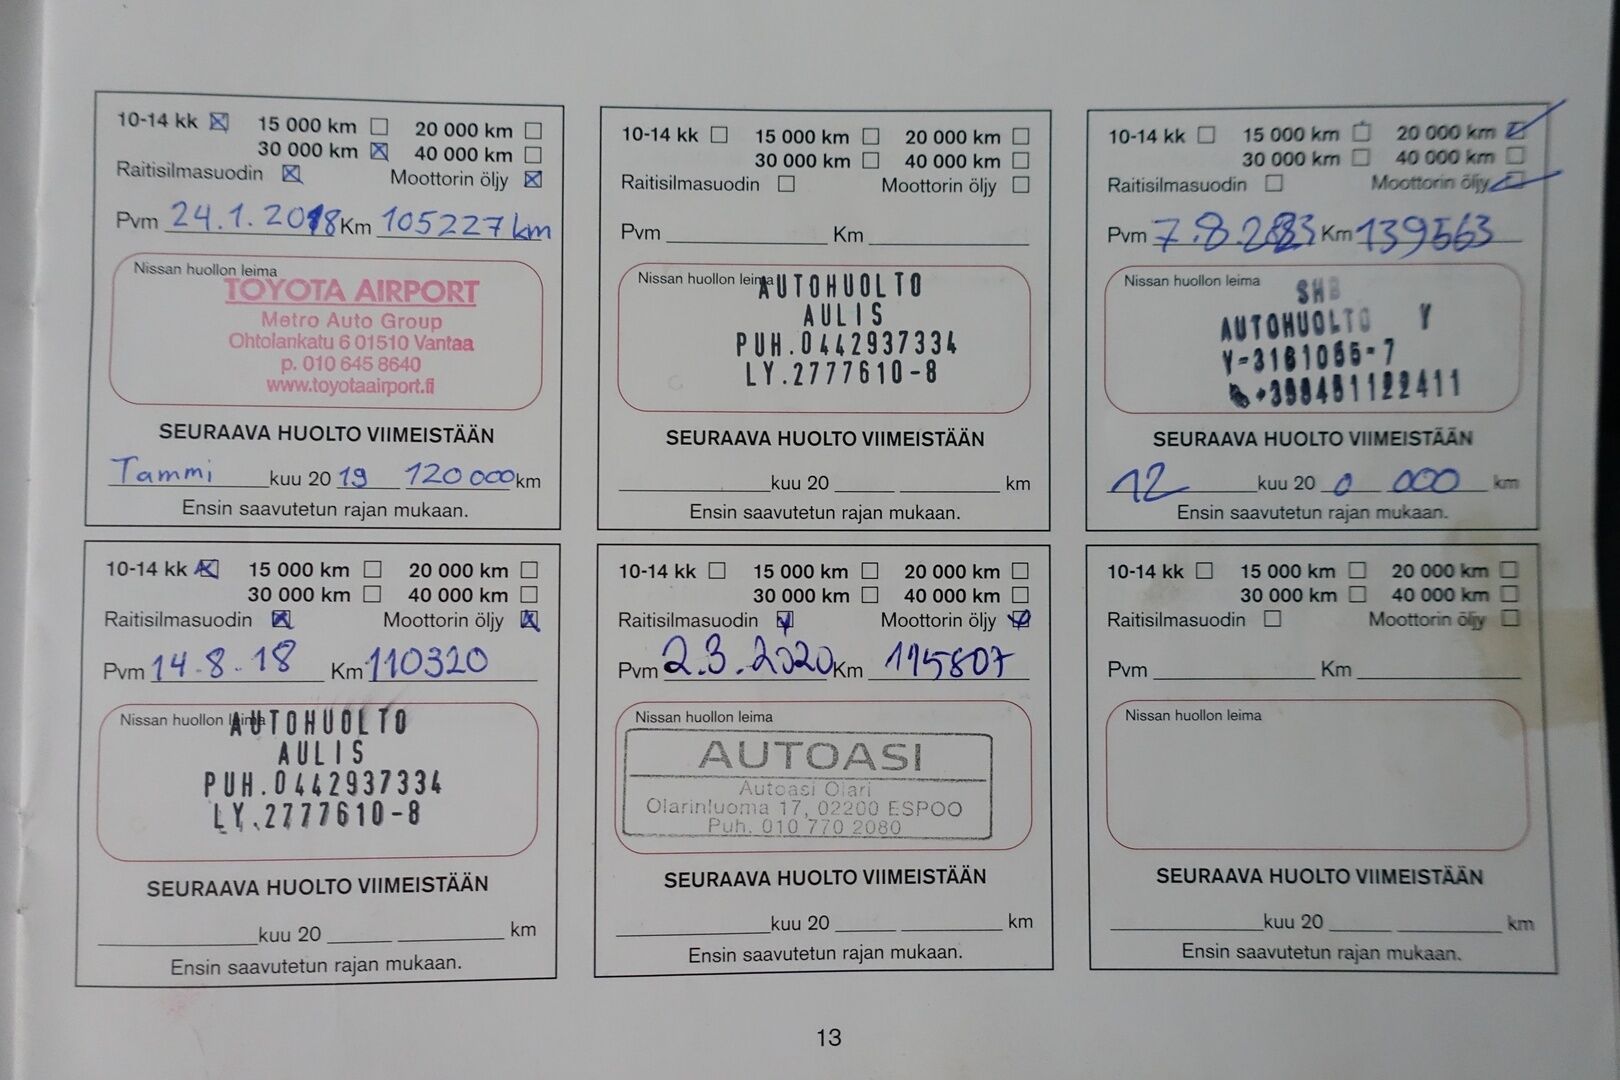 10-14 kk 15 000 km 20 000 km
30 000 km 40 000 km
Raitisilmasuodin Moottorin öljy
Pvm 24.1.2018 Km 105227 km
Nissan huollon leima
TOYOTA AIRPORT
Metro Auto Group
Ohtolankatu 6 01510 Vantaa
p. 010 645 8640
www.toyotaairport.fi
SEURAAVA HUOLTO VIIMEISTÄÄN
Tammi kuu 20 19 120 000 km
Ensin saavutetun rajan mukaan.
10-14 kk 15 000 km 20 000 km
30 000 km 40 000 km
Raitisilmasuodin Moottorin öljy
Pvm Km
Nissan huollon leima
AUTOHUOLTO
AULIS
PUH.0442937334
LY.2777610-8
SEURAAVA HUOLTO VIIMEISTÄÄN
kuu 20 km
Ensin saavutetun rajan mukaan.
10-14 kk 15 000 km 20 000 km
30 000 km 40 000 km
Raitisilmasuodin Moottorin öljy
Pvm 7.8. Km 139563
Nissan huollon leima
SHB
AUTOHUOLTO Y
Y-3161066-7
+358451122411
SEURAAVA HUOLTO VIIMEISTÄÄN
12 kuu 20 0 000 km
Ensin saavutetun rajan mukaan.
10-14 kk 15 000 km 20 000 km
30 000 km 40 000 km
Raitisilmasuodin Moottorin öljy
Pvm 14.8.18 Km 110320
Nissan huollon leima
AUTOHUOLTO
AULIS
PUH.0442937334
LY.2777610-8
SEURAAVA HUOLTO VIIMEISTÄÄN
kuu 20 km
Ensin saavutetun rajan mukaan.
10-14 kk 15 000 km 20 000 km
30 000 km 40 000 km
Raitisilmasuodin Moottorin öljy
Pvm 2.3.2020 Km 115807
Nissan huollon leima
AUTOASI
Autoasi Olari
Olarinluoma 17, 02200 ESPOO
Puh. 010 770 2080
SEURAAVA HUOLTO VIIMEISTÄÄN
kuu 20 km
Ensin saavutetun rajan mukaan.
10-14 kk 15 000 km 20 000 km
30 000 km 40 000 km
Raitisilmasuodin Moottorin öljy
Pvm Km
Nissan huollon leima
SEURAAVA HUOLTO VIIMEISTÄÄN
kuu 20 km
Ensin saavutetun rajan mukaan.
13